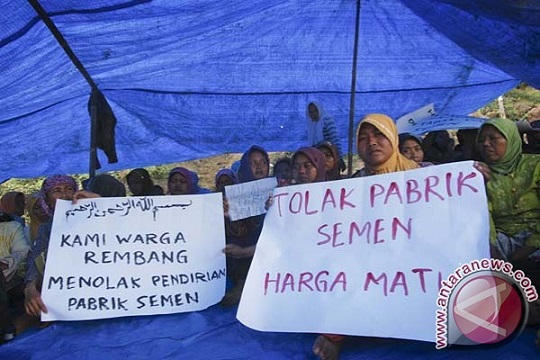 بسم الله الرحمن الرحيم
KAMI WARGA
REMBANG
MENOLAK PENDIRIAN
PABRIK SEMEN
TOLAK PABRIK
SEMEN
HARGA MATI
www.antaranews.com